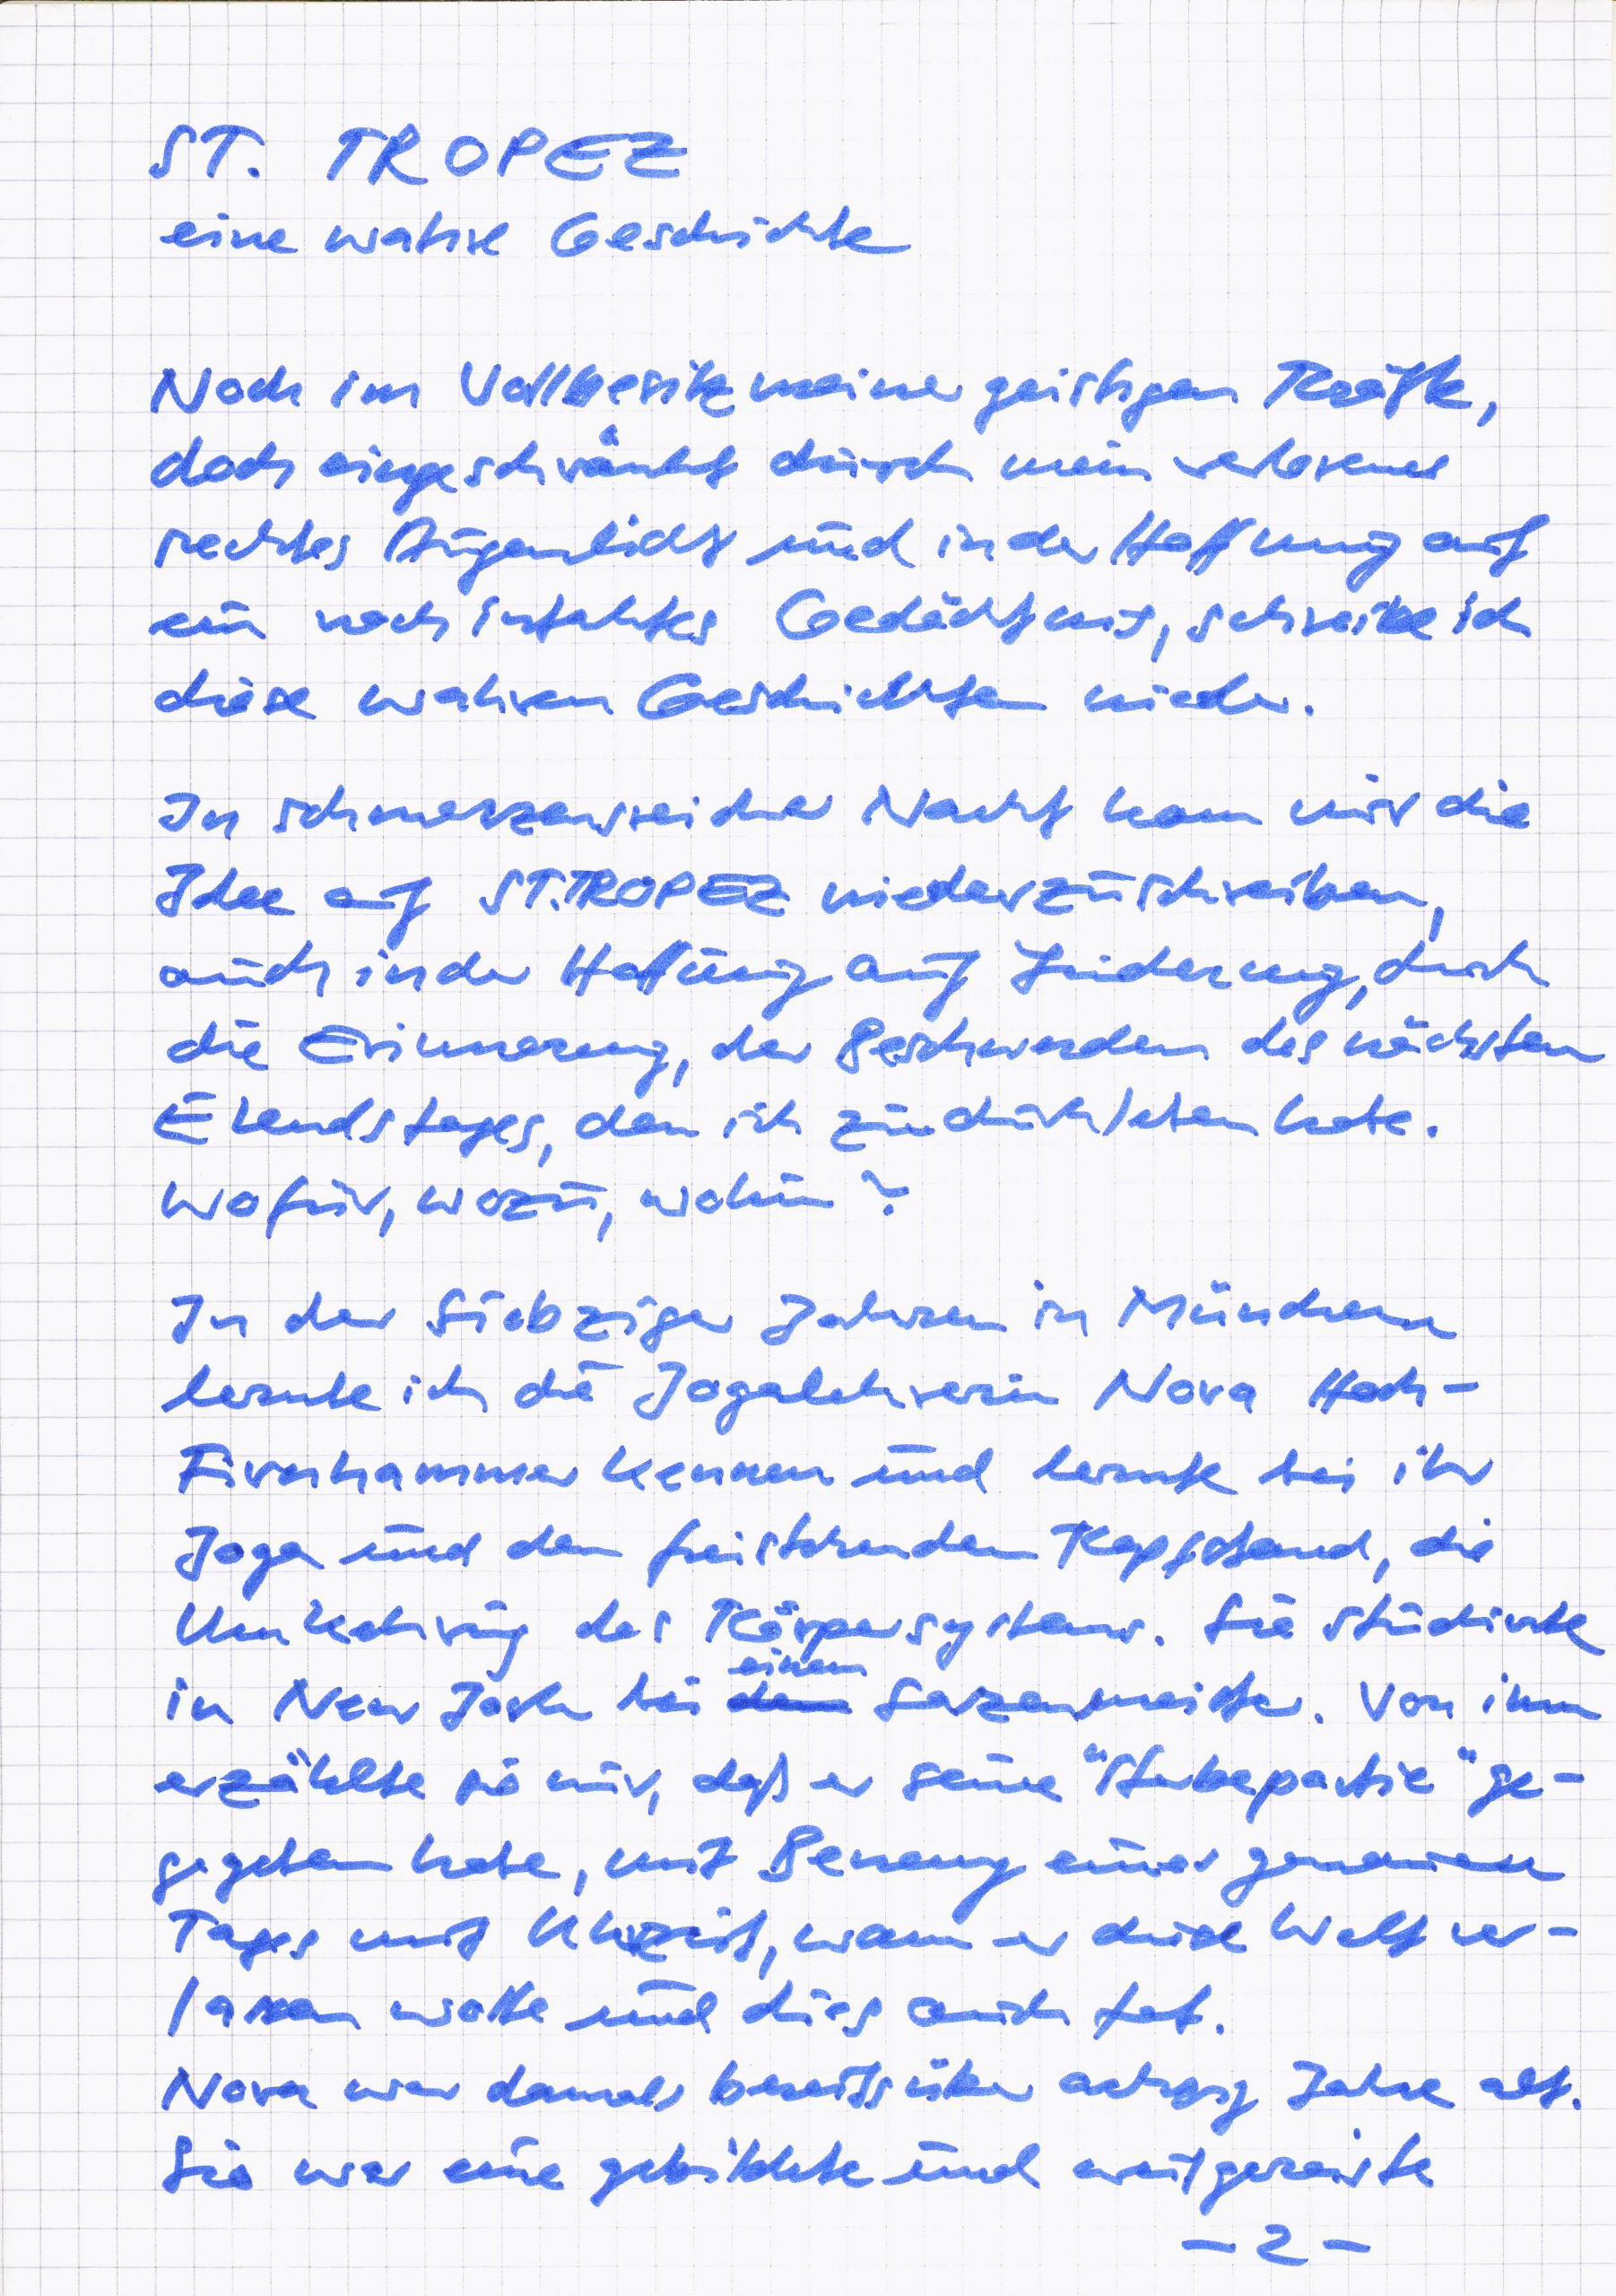 ST. TROPEZ
eine wahre Geschichte
Noch im Vollbesitz meiner geistigen Kräfte,
doch eingeschränkt durch mein verlorenes
rechtes Augenlicht und in der Hoffnung auf
ein noch intaktes Gedächtnis, schreibe ich
diese wahren Geschichten nieder.
In schmerzensreicher Nacht kam mir die
Idee auf ST. TROPEZ niederzuschreiben,
auch in der Hoffnung auf Linderung, durch
die Erinnerung, der Beschwerden des nächsten
Elendstages, den ich zu durchleben habe.
Wofür, wozu, wohin?
In der Siebziger Jahren in München
lernte ich die Jogalehrerin Nova Hoch-
kennen und lernte bei ihr
Joga und den freistehenden Kopfstand, die
Umkehrung des Körpersystems. Sie studierte
in New Jork bei einem meister. Von ihm
erzählte sie mir, daß er seine "Sterbepartie" ge-
gegeben habe, mit Benennung eines genauen
Tages mit Uhrzeit, wann er diese Welt ver-
lassen wolle und dies auch tat.
Nova war damals bereits über achtzig Jahre alt.
Sie war eine gebildete und weitgereiste
- 2 -